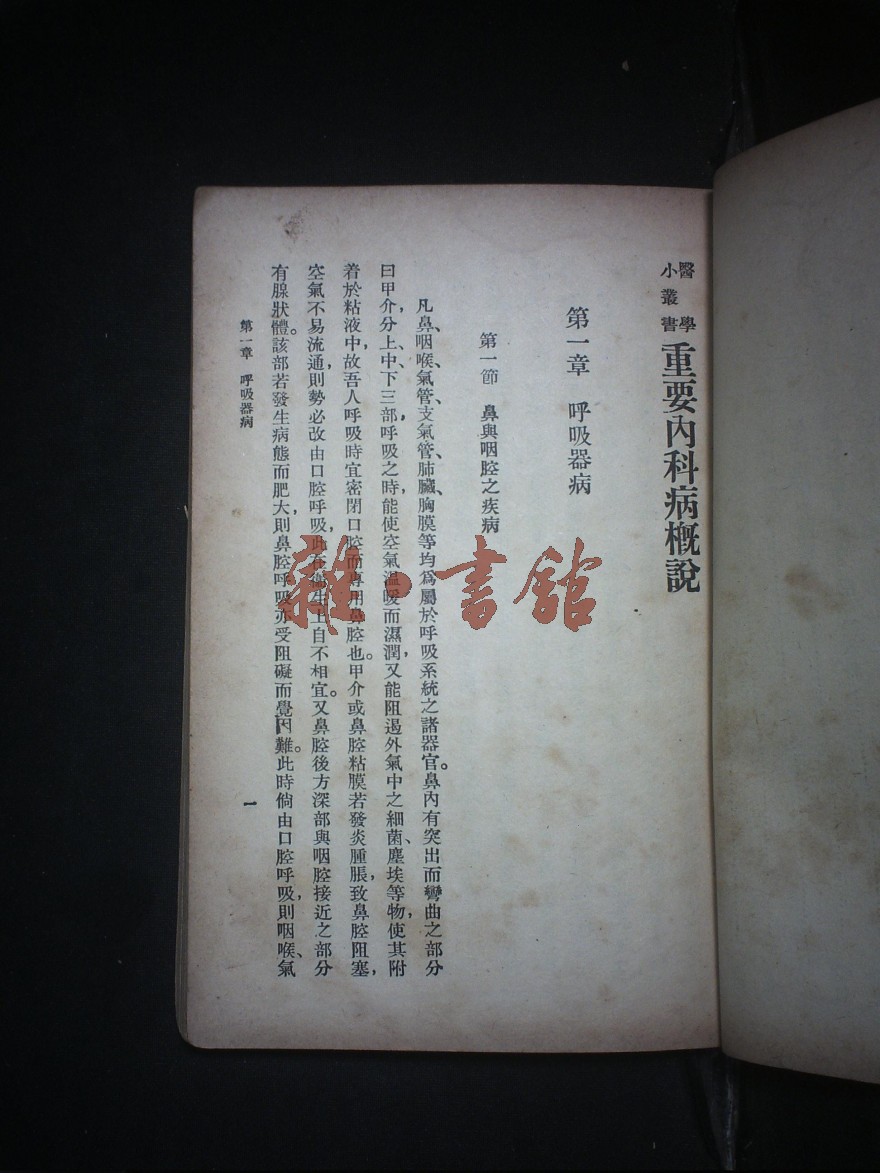 醫學
小叢書
重要內科病概說
第一章 呼吸器病
第一節 鼻與咽腔之疾病
凡鼻、咽喉、氣管、支氣管、肺臟、胸膜等均爲屬於呼吸系統之諸器官。鼻內有突出而彎曲之部分
曰甲介，分上、中、下三部，呼吸之時，能使空氣溫暖而濕潤，又能阻遏外氣中之細菌、塵埃等物，使其附
着於粘液中，故吾人呼吸時宜密閉口腔而專用鼻腔也。甲介或鼻腔粘膜若發炎腫脹，致鼻腔阻塞，
空氣不易流通，則勢必改由口腔呼吸，此在衞生上自不相宜。又鼻腔後方深部與咽腔接近之部分
有腺狀體。該部若發生病態而肥大，則鼻腔呼吸亦受阻礙而覺困難。此時倘由口腔呼吸，則咽喉、氣
第一章 呼吸器病
一
雜·書館